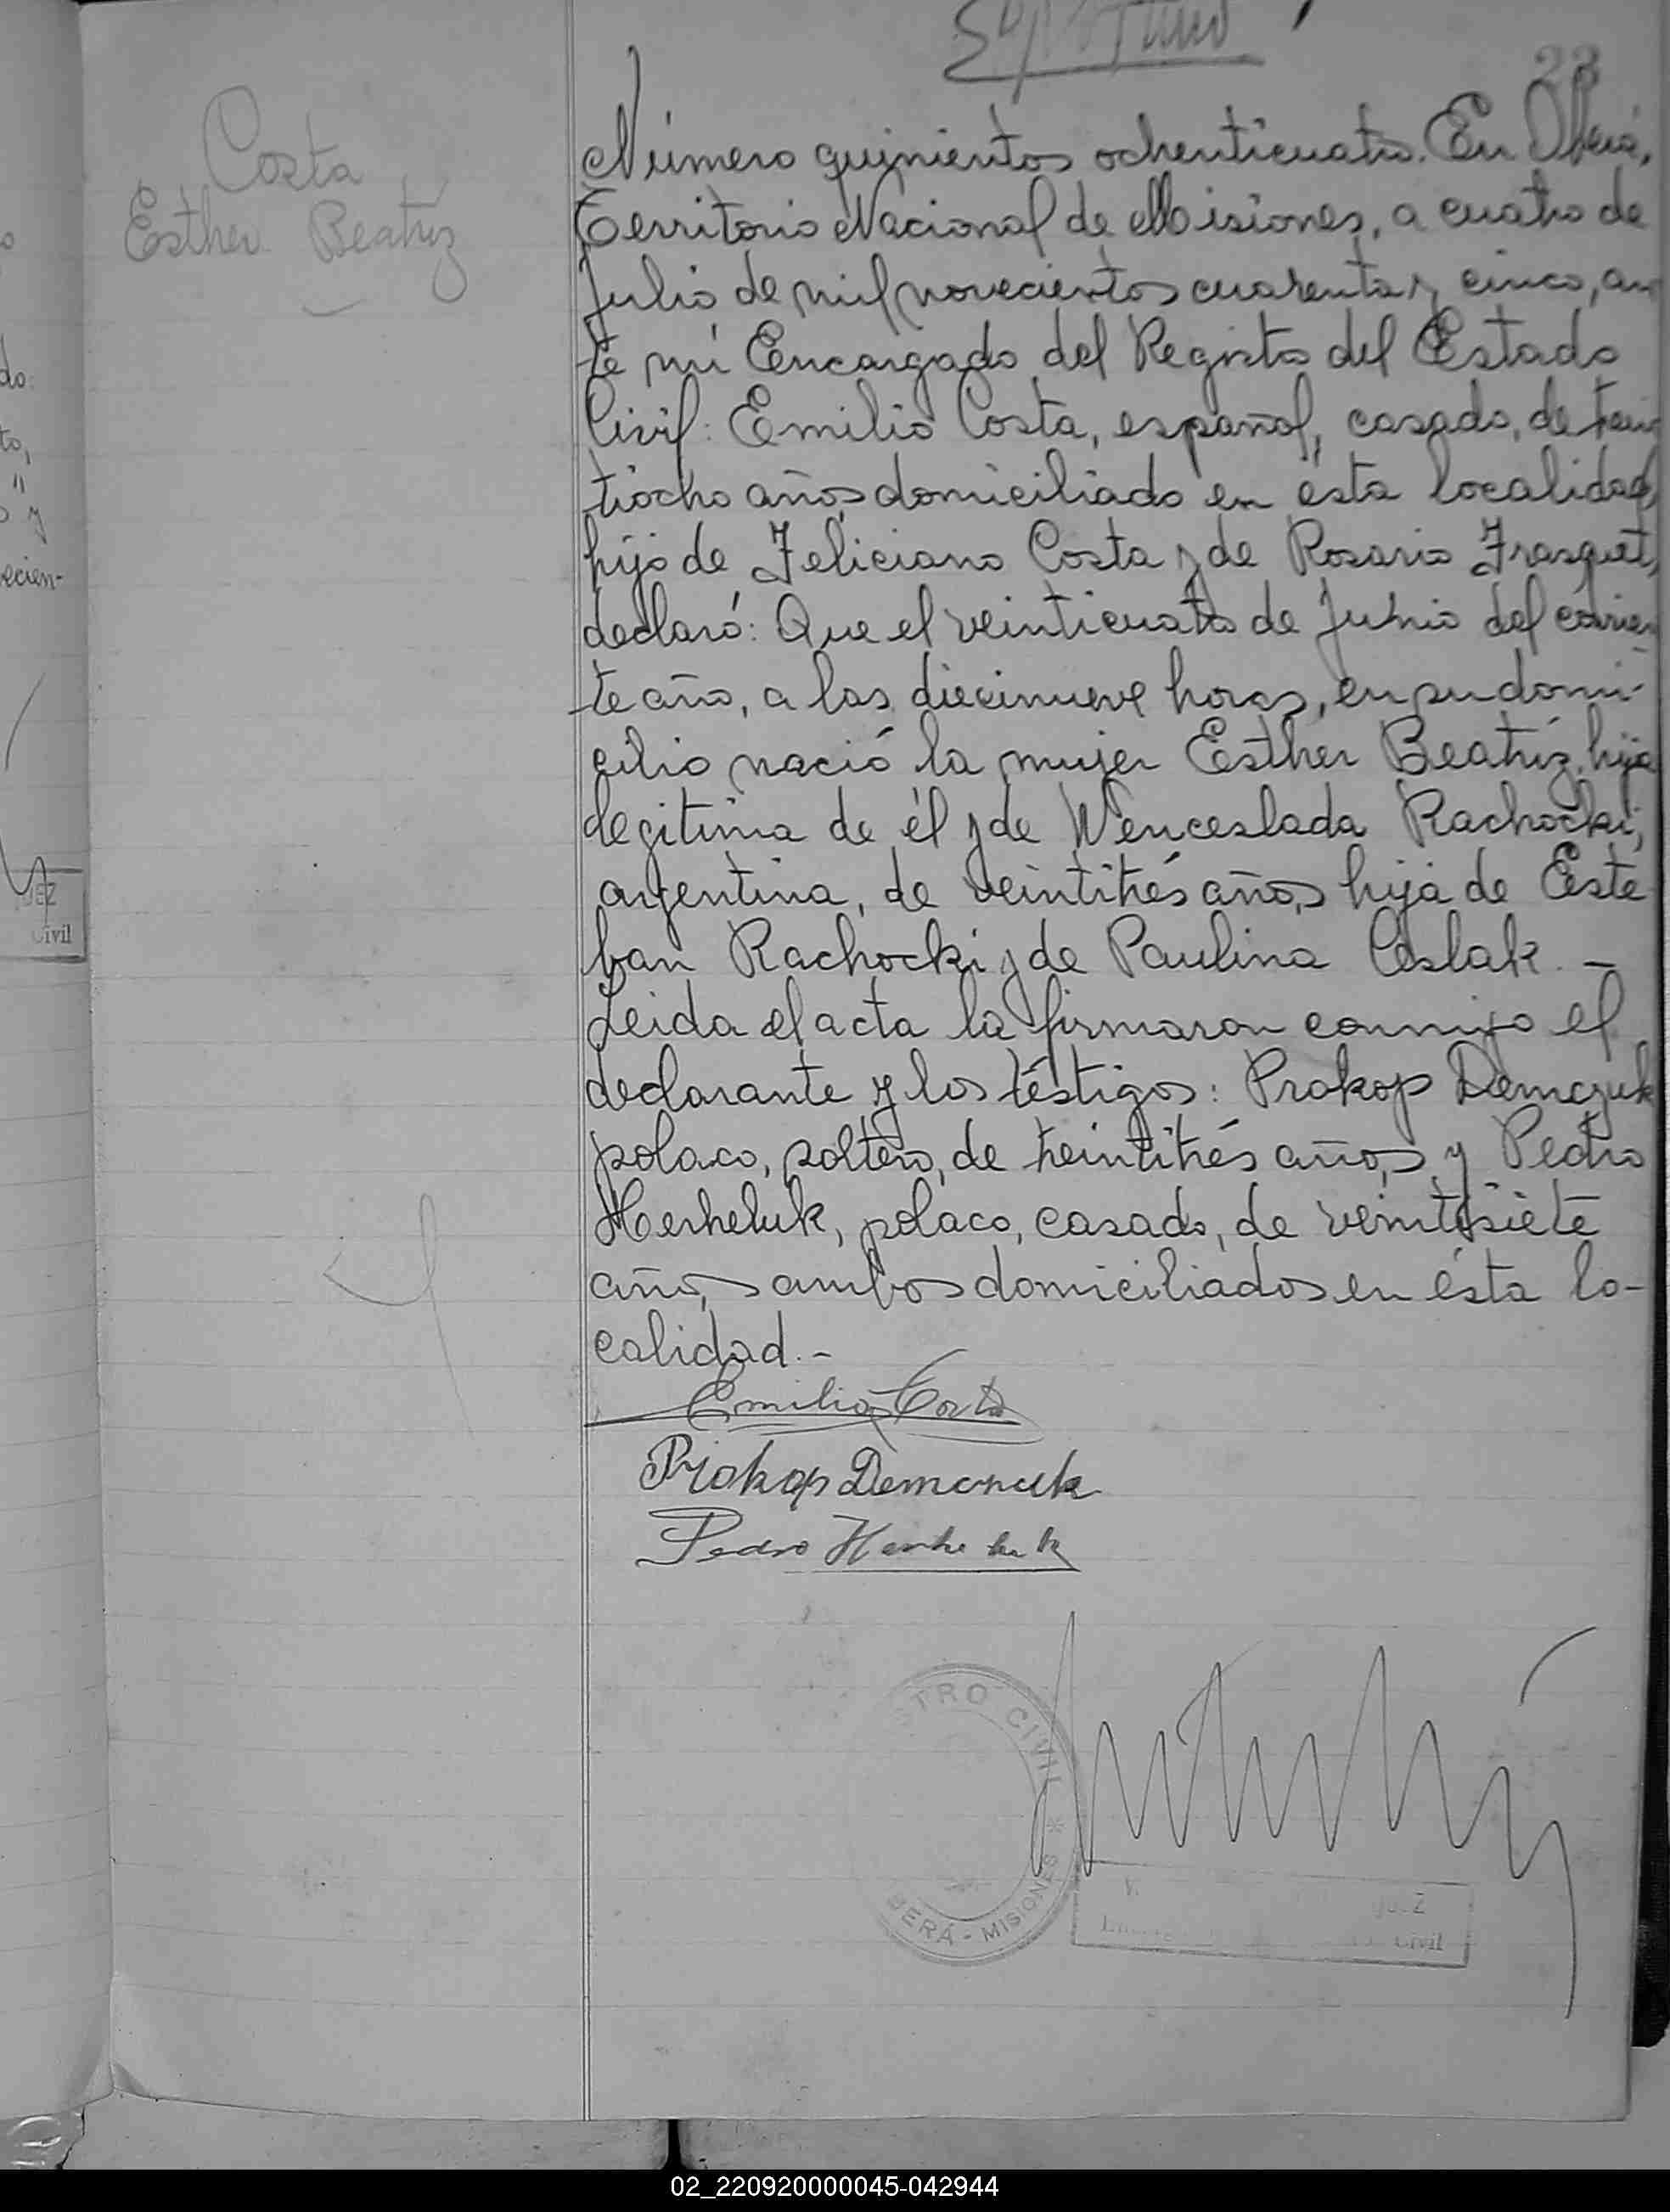 23
Costa
Esther Beatríz
Número quinientos ochenticuatro. En Oberá,
Territorio Nacional de Misiones, a cuatro de
Julio de mil novecientos cuarenta y cinco, an
te mí Encargado del Registro del Estado
Civil: Emilio Costa, español, casado, de trein
tiocho años, domiciliado en ésta localidad,
hijo de Feliciano Costa y de Rosario Frasquet,
declaró: Que el veinticuatro de Junio del corrien
te año, a las diecinueve horas, en su domi-
cilio nació la mujer Esther Beatríz, hija
legitima de él y de Wenceslada Rachocki,
argentina, de veintitrés años, hija de Este
ban Rachocki y de Paulina Ceslak. -
Leida el acta la firmaron conmigo el
declarante y los téstigos: Prokop Demczuk
polaco, soltero, de treintitrés años, y Pedro
Herheluk, polaco, casado, de veintisiete
años, ambos domiciliados en ésta lo-
calidad.-
Emilio Costa
Prokop Demczuk
Pedro Herheluk
STRO CIVIL * BERÁ - MISIONES
JUEZ
Civil
do
to,
y
ecien-
UEZ
Civil
02_220920000045-042944